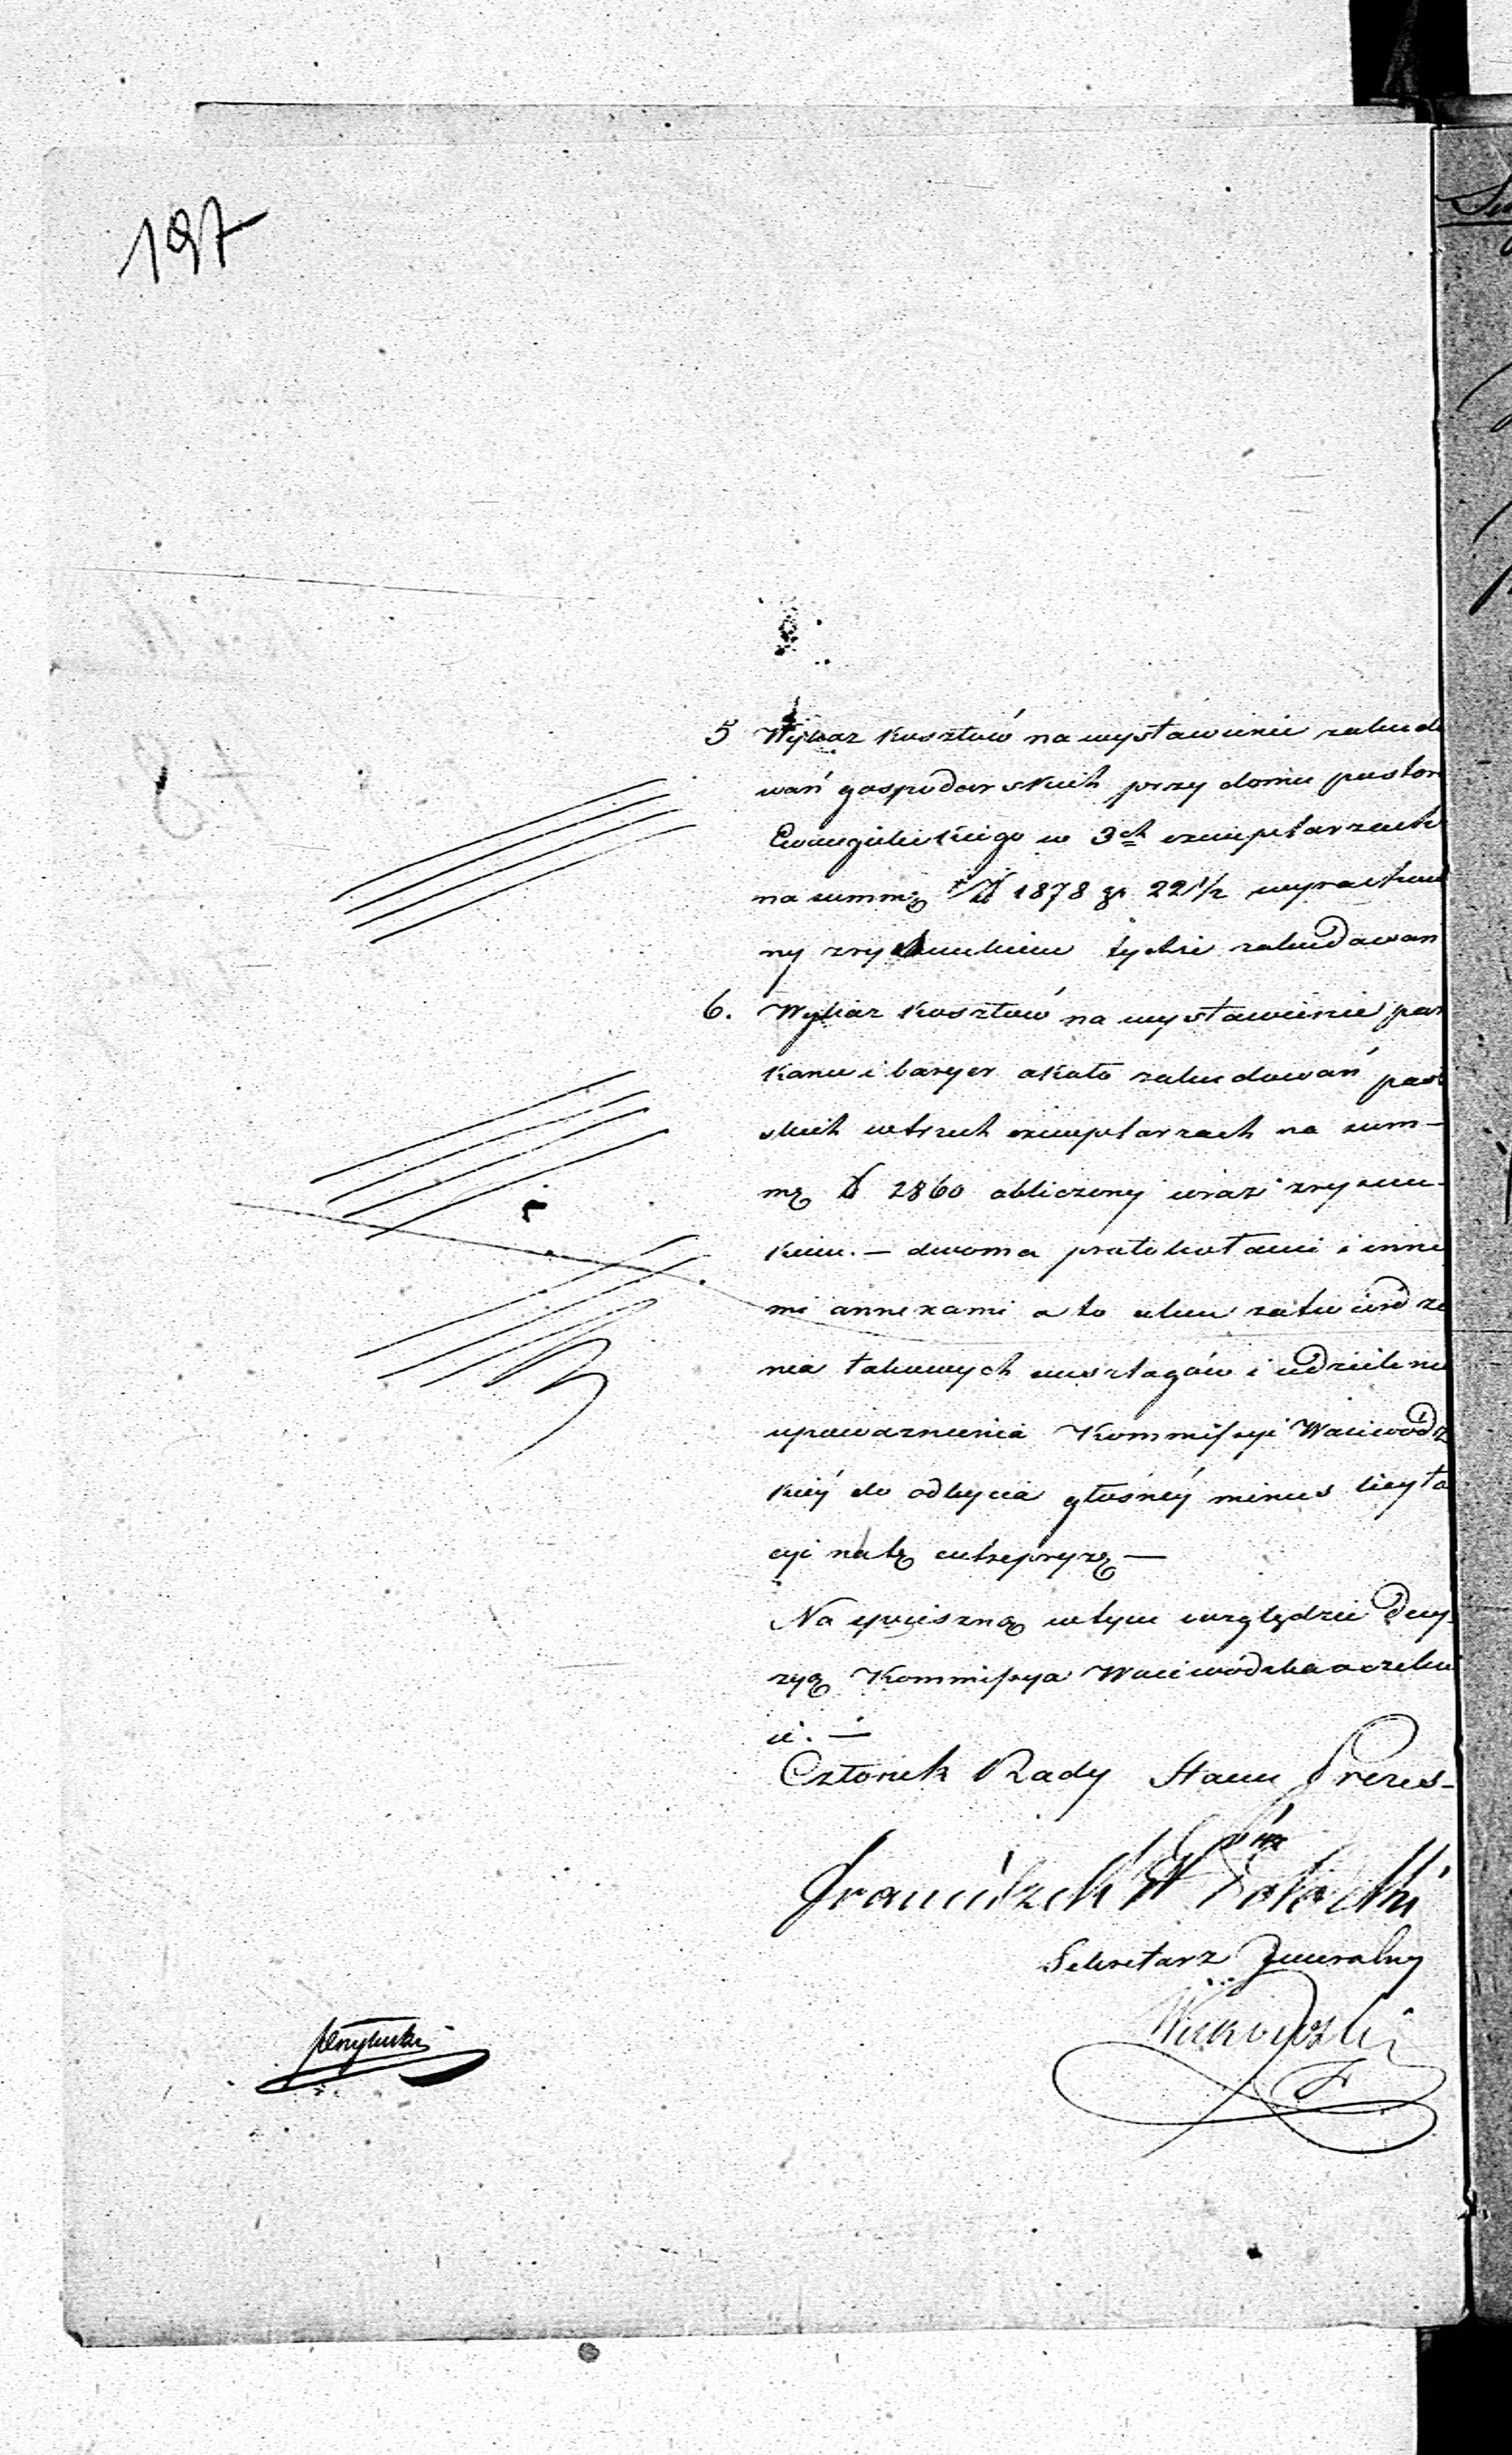 197
5 Wykaz kosztów na wystawienie zabudo
wań gospodarskich przy domu pastora
Ewangielickiego w 3ch exemplarzach
na summę 1878 gr 22 1/2 wyrachowa
ny z rysunkiem tychże zabudowań
6. Wykaz kosztów na wystawienie par
kanu i baryer około zabudowań past
skich w trzech exemplarzach na sum-
mę 2860 obliczony wraz z rysun-
kiem. — dwoma protokołami i inne
mi annexami a to celem zatwierdze
nia takowych anszlagów i udzielenie
upoważnienia Kommissyi Woiewódz
kiéy do odbycia głośnéy minus licyta
cyi na tę entrepryzę —
Na spieszną w tym względzie Decy
zyą Kommissya Woiewódzka oczeku
ie. —
Członek Rady Stanu Prezes
Franciszek
Sekretarz Jeneralny